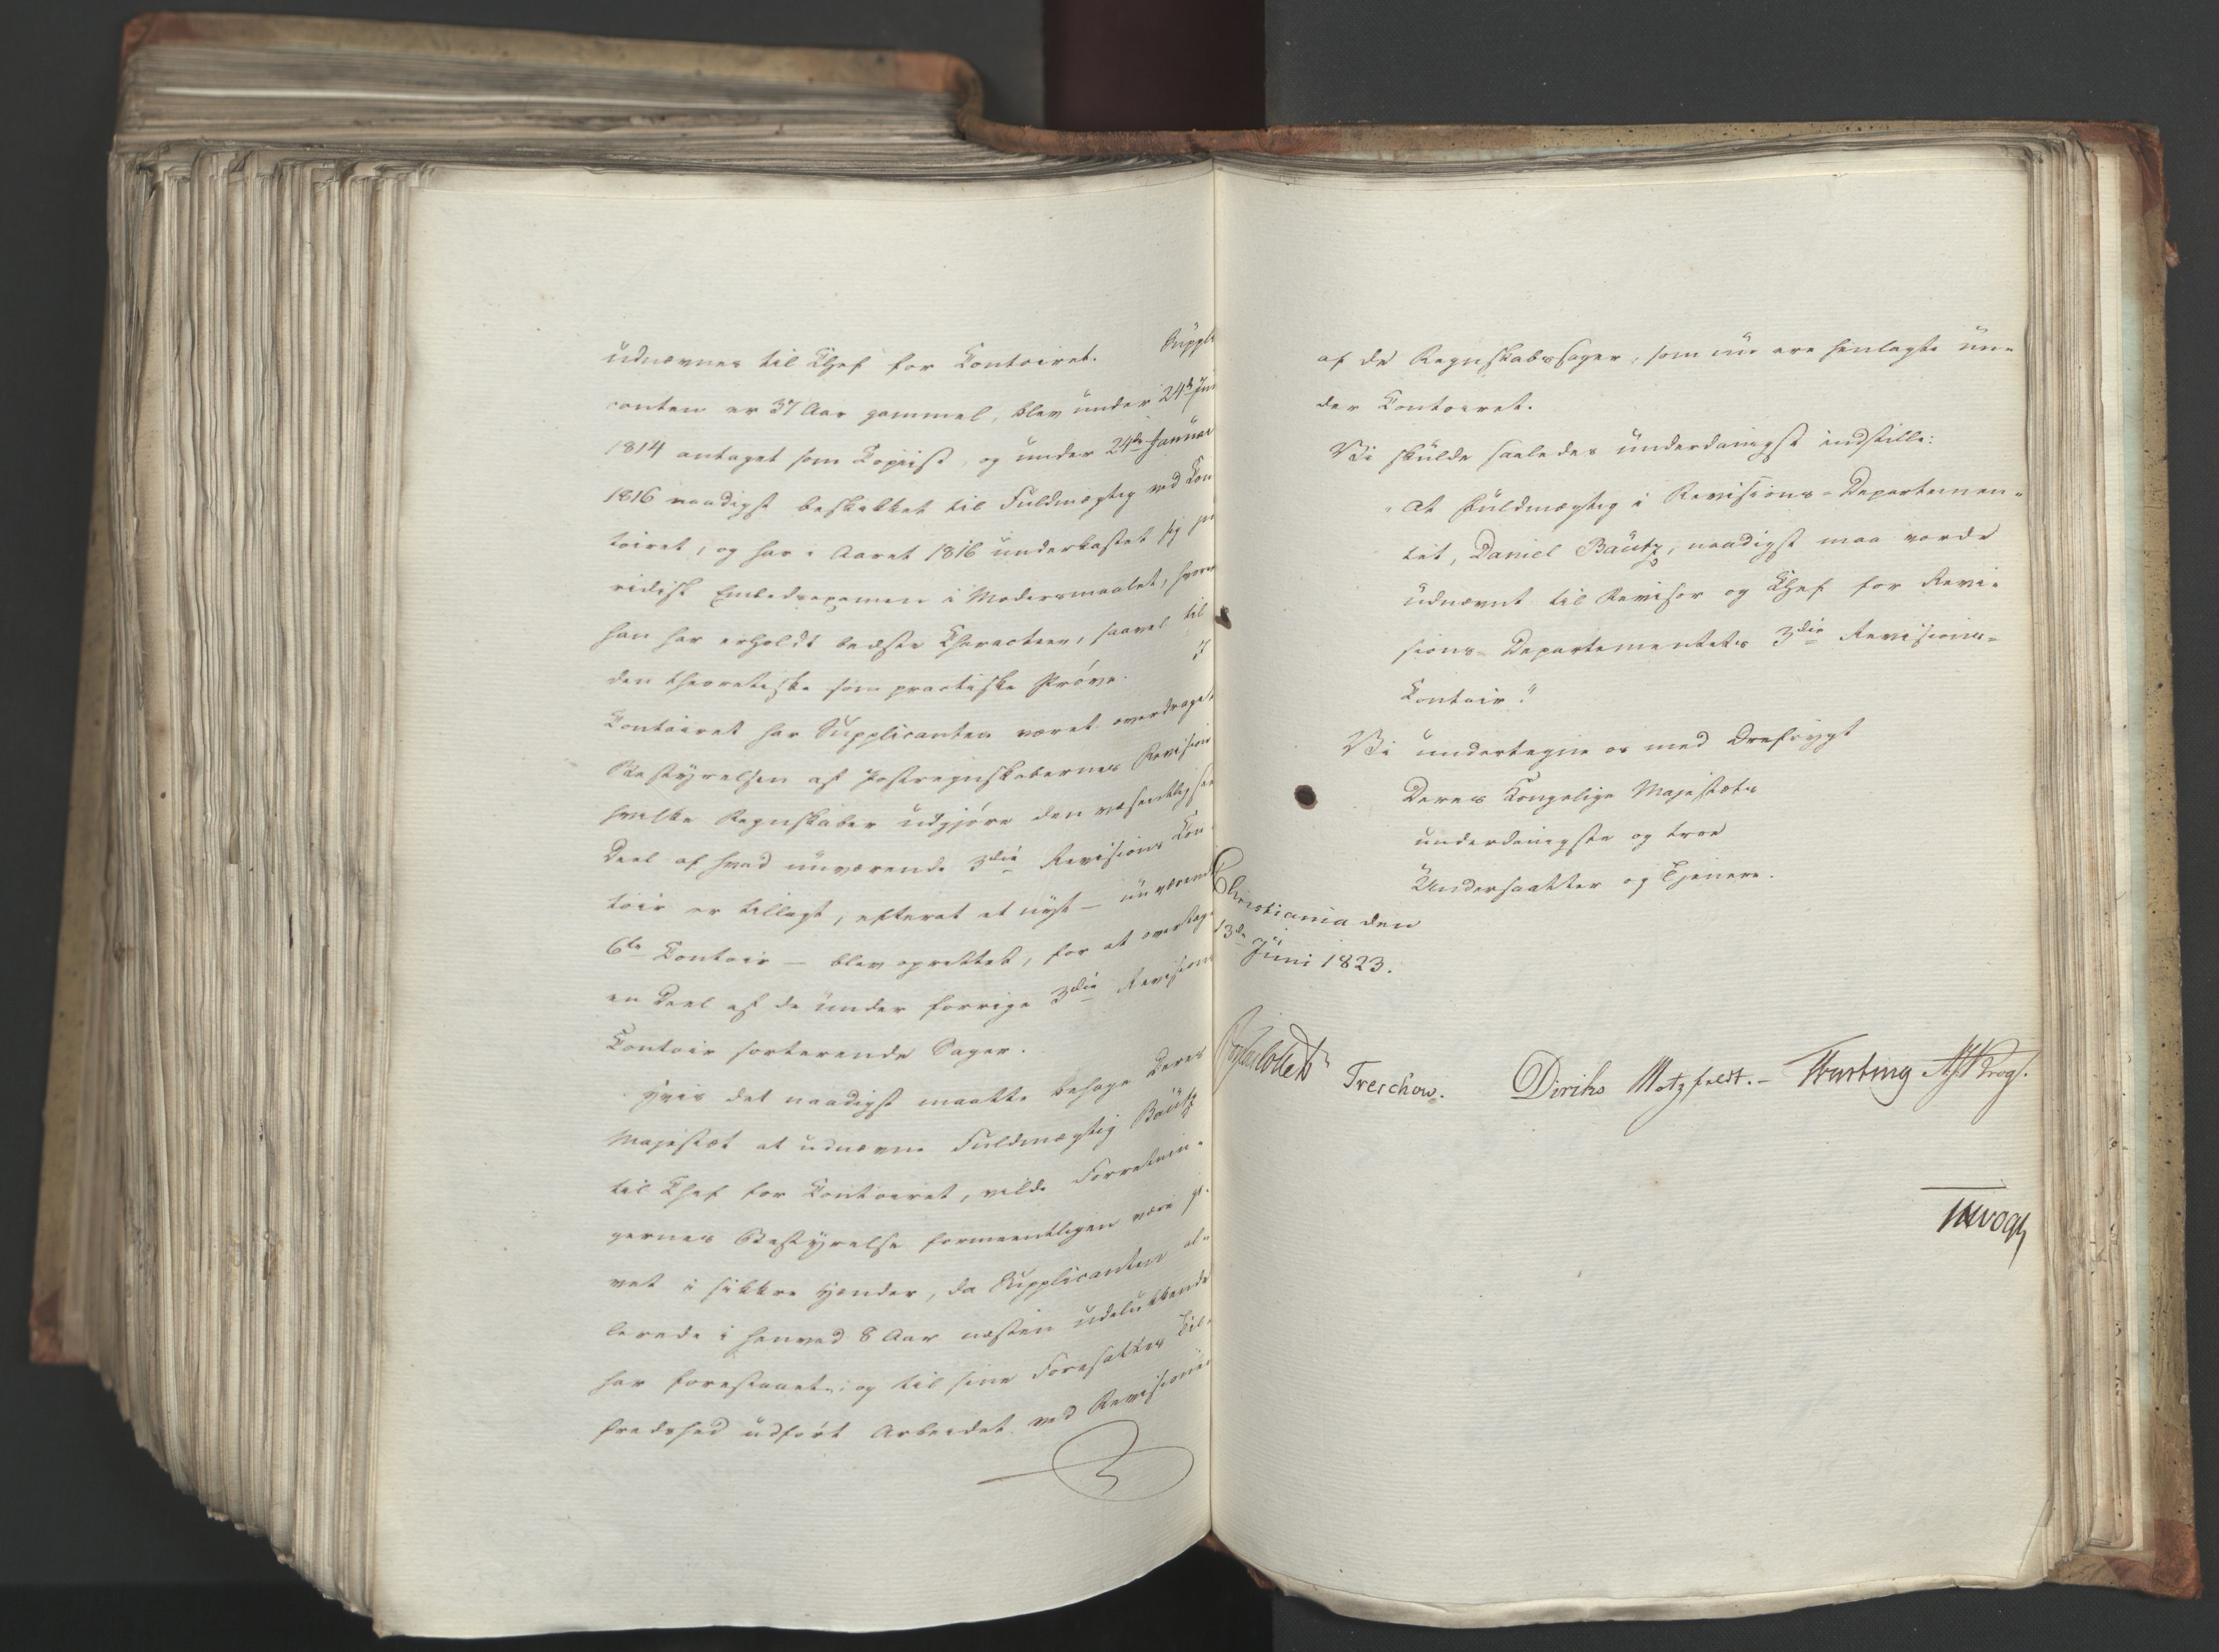 udnævnes til Chef for Contoiret. Suppli
canten er 37 Aar gammel, blev under 24de Juni
1814 antaget som Copiist, og under 24de Januar
1816 naadigst beskikket til Fuldmægtig ved Con
toiret, og har i Aaret 1816 underkastet sig ju
ridisk Embedsexamen i Modersmaalet, hvorved
han har erholdt bedste Characteer, saavel til
den theoretiske som practiske Prøve. I
Contoiret har Supplicanten været overdraget
Bestyrelsen af Postregnskabernes Revision
hvilke Regnskaber udgjøre den væsentligste
Deel af hvad nuværende 3die Revisions Con
toir er tillagt, efterat et nyt – nu værende
6te Contoir – blev oprettet, for at overtage
en Deel af de under forrige 3die Revisions
Contoir sorterende Sager.
Hvis det naadigst maatte behage Deres
Majestæt at udnævne Fuldmægtig Bautz
til Chef for Contoiret, vilde Forretnin-
gernes Bestyrelse formeentligen være gi-
vet i sikkre Hænder, da Supplicanten al-
lerede i henved 8 Aar næsten udelukkende
har forestaaet, og til sine Foresattes Til-
fredshed udført Arbeidet ved Revisionen
af de Regnskabssager, som nu ere henlagte un-
der Contoiret.
Vi skulde saaledes underdanigst indstille:
"At Fuldmægtig i Revisions-Departemen-
tet, Daniel Bautz, naadigst maa vorde
udnævnt til Revisor og Chef for Revi-
sions-Departementets 3die Revisions-
Contoir."
Vi undertegne os med Ærefrygt
Deres Kongelige Majestæts
underdanigste og troe
Undersaatter og Tjenere.
Christiania den
13de Juni 1823.
Treschow. Diriks Motzfeldt.- Fasting A Krog.
Vogt